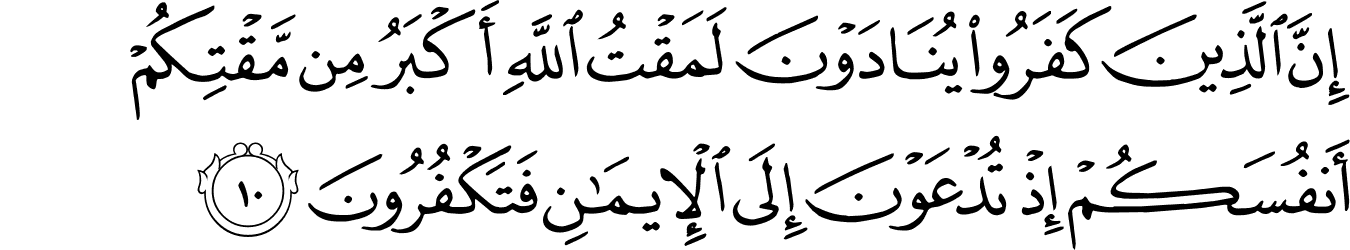 إِنَّ ٱلَّذِينَ كَفَرُوا۟ يُنَادَوْنَ لَمَقْتُ ٱللَّهِ أَكْبَرُ مِن مَّقْتِكُمْ
أَنفُسَكُمْ إِذْ تُدْعَوْنَ إِلَى ٱلْإِيمَـٰنِ فَتَكْفُرُونَ ١٠